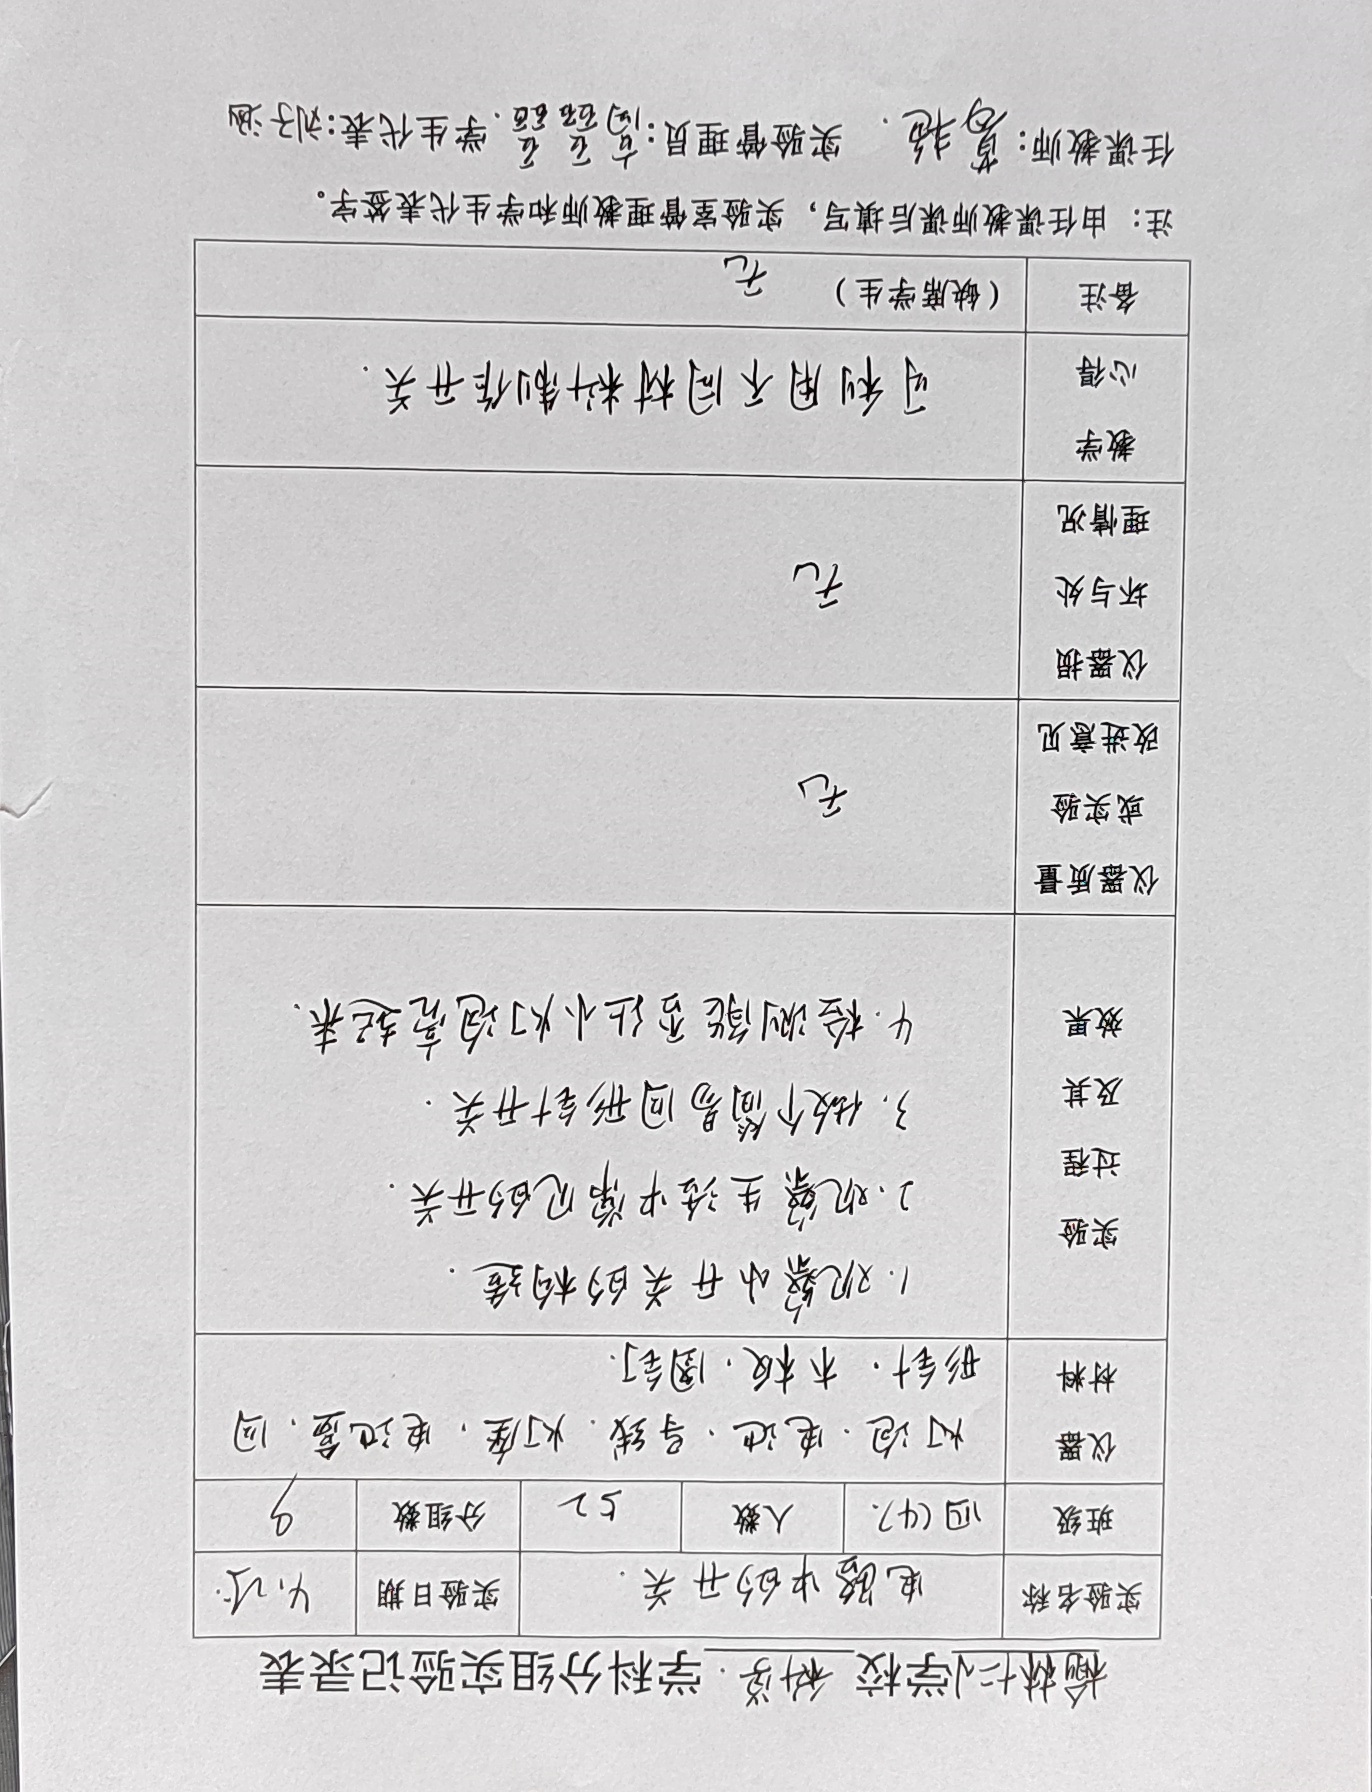 榆林仁小学校 科学 学科分组实验记录表
实验名称 电路中的开关. 实验日期
班级 四(4). 人数 52 分组数 9
仪器 灯泡. 电池. 导线. 灯座. 电池盒. 回
材料 形针. 木板. 图钉.
实验
过程
及其
效果
1. 观察小开关的构造.
2. 观察生活中常见的开关.
3. 做个简易回形针开关.
4. 检测能否让小灯泡亮起来.
仪器质量
或实验
改进意见
无
仪器损
坏与处
理情况
无
教学
心得
可利用不同材料制作开关.
备注 (缺席学生) 无
注: 由任课教师课后填写, 实验室管理教师和学生代表签字。
任课教师: 实验管理员: 学生代表: 刘子涵